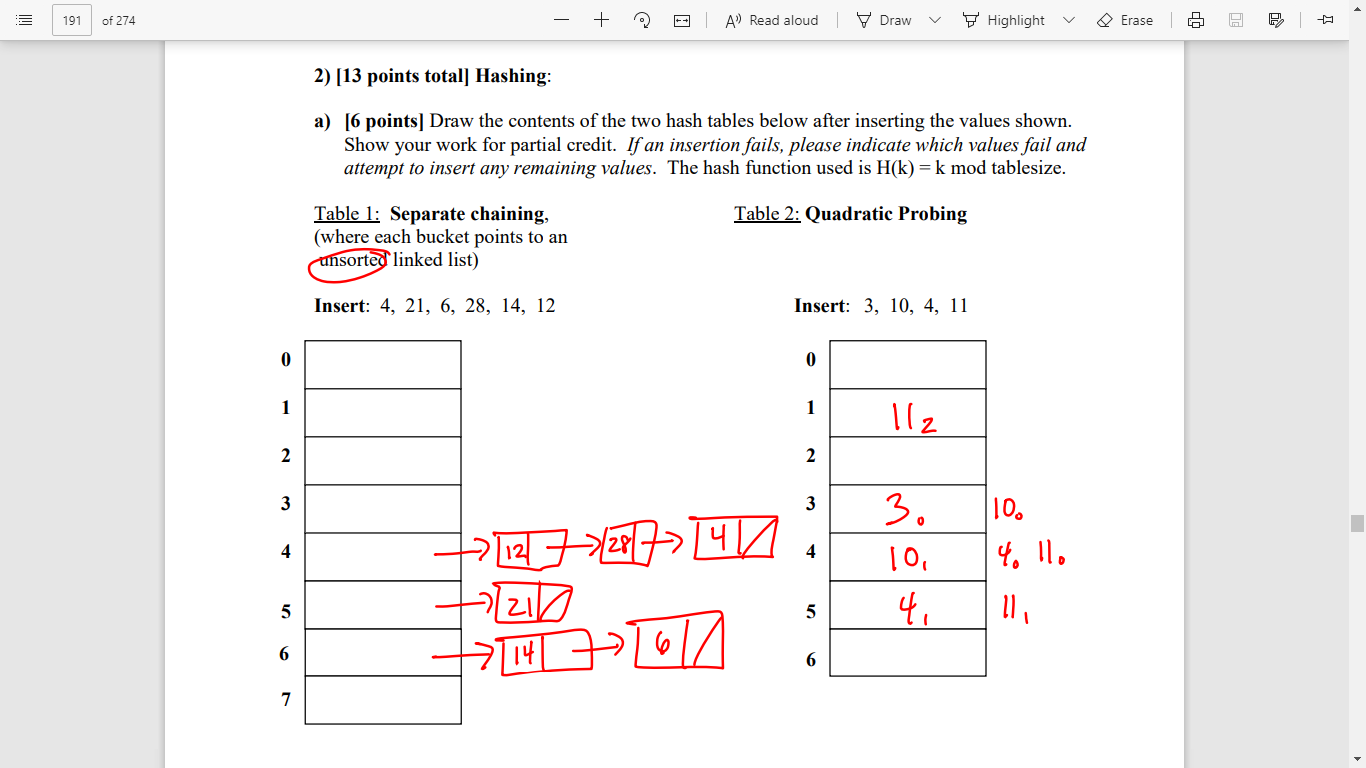 191 of 274 Read aloud Draw Highlight Erase
2) [13 points total] Hashing:
a) [6 points] Draw the contents of the two hash tables below after inserting the values shown.
Show your work for partial credit. If an insertion fails, please indicate which values fail and
attempt to insert any remaining values. The hash function used is H(k) = k mod tablesize.
Table 1: Separate chaining,
(where each bucket points to an
unsorted linked list)
Insert: 4, 21, 6, 28, 14, 12
0
1
2
3
4 12 28 4
5 21
6 14 6
7
Table 2: Quadratic Probing
Insert: 3, 10, 4, 11
0
1 11₂
2
3 3₀ 10₀
4 10₁ 4₀ 11₀
5 4₁ 11₁
6